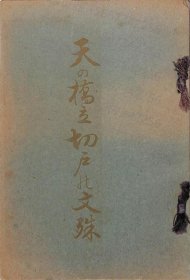 天の橋立切戸の文殊